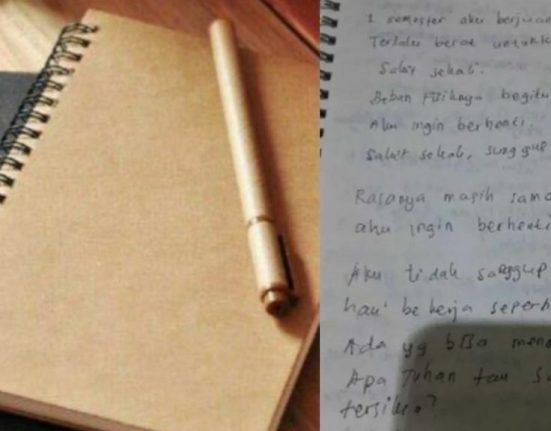 1 semester aku berjuan
Terlalu berat untukk
Sakit sekali.
Beban fisiknya begitu
Aku ingin berhenti,
Sakit sekali, sunggup
Rasanya masih sama
aku ingin berhenti
Aku tidak sanggup
hari bekerja seperti
Ada yg bisa mend
Apa Tuhan tau Sa
tersiksa?